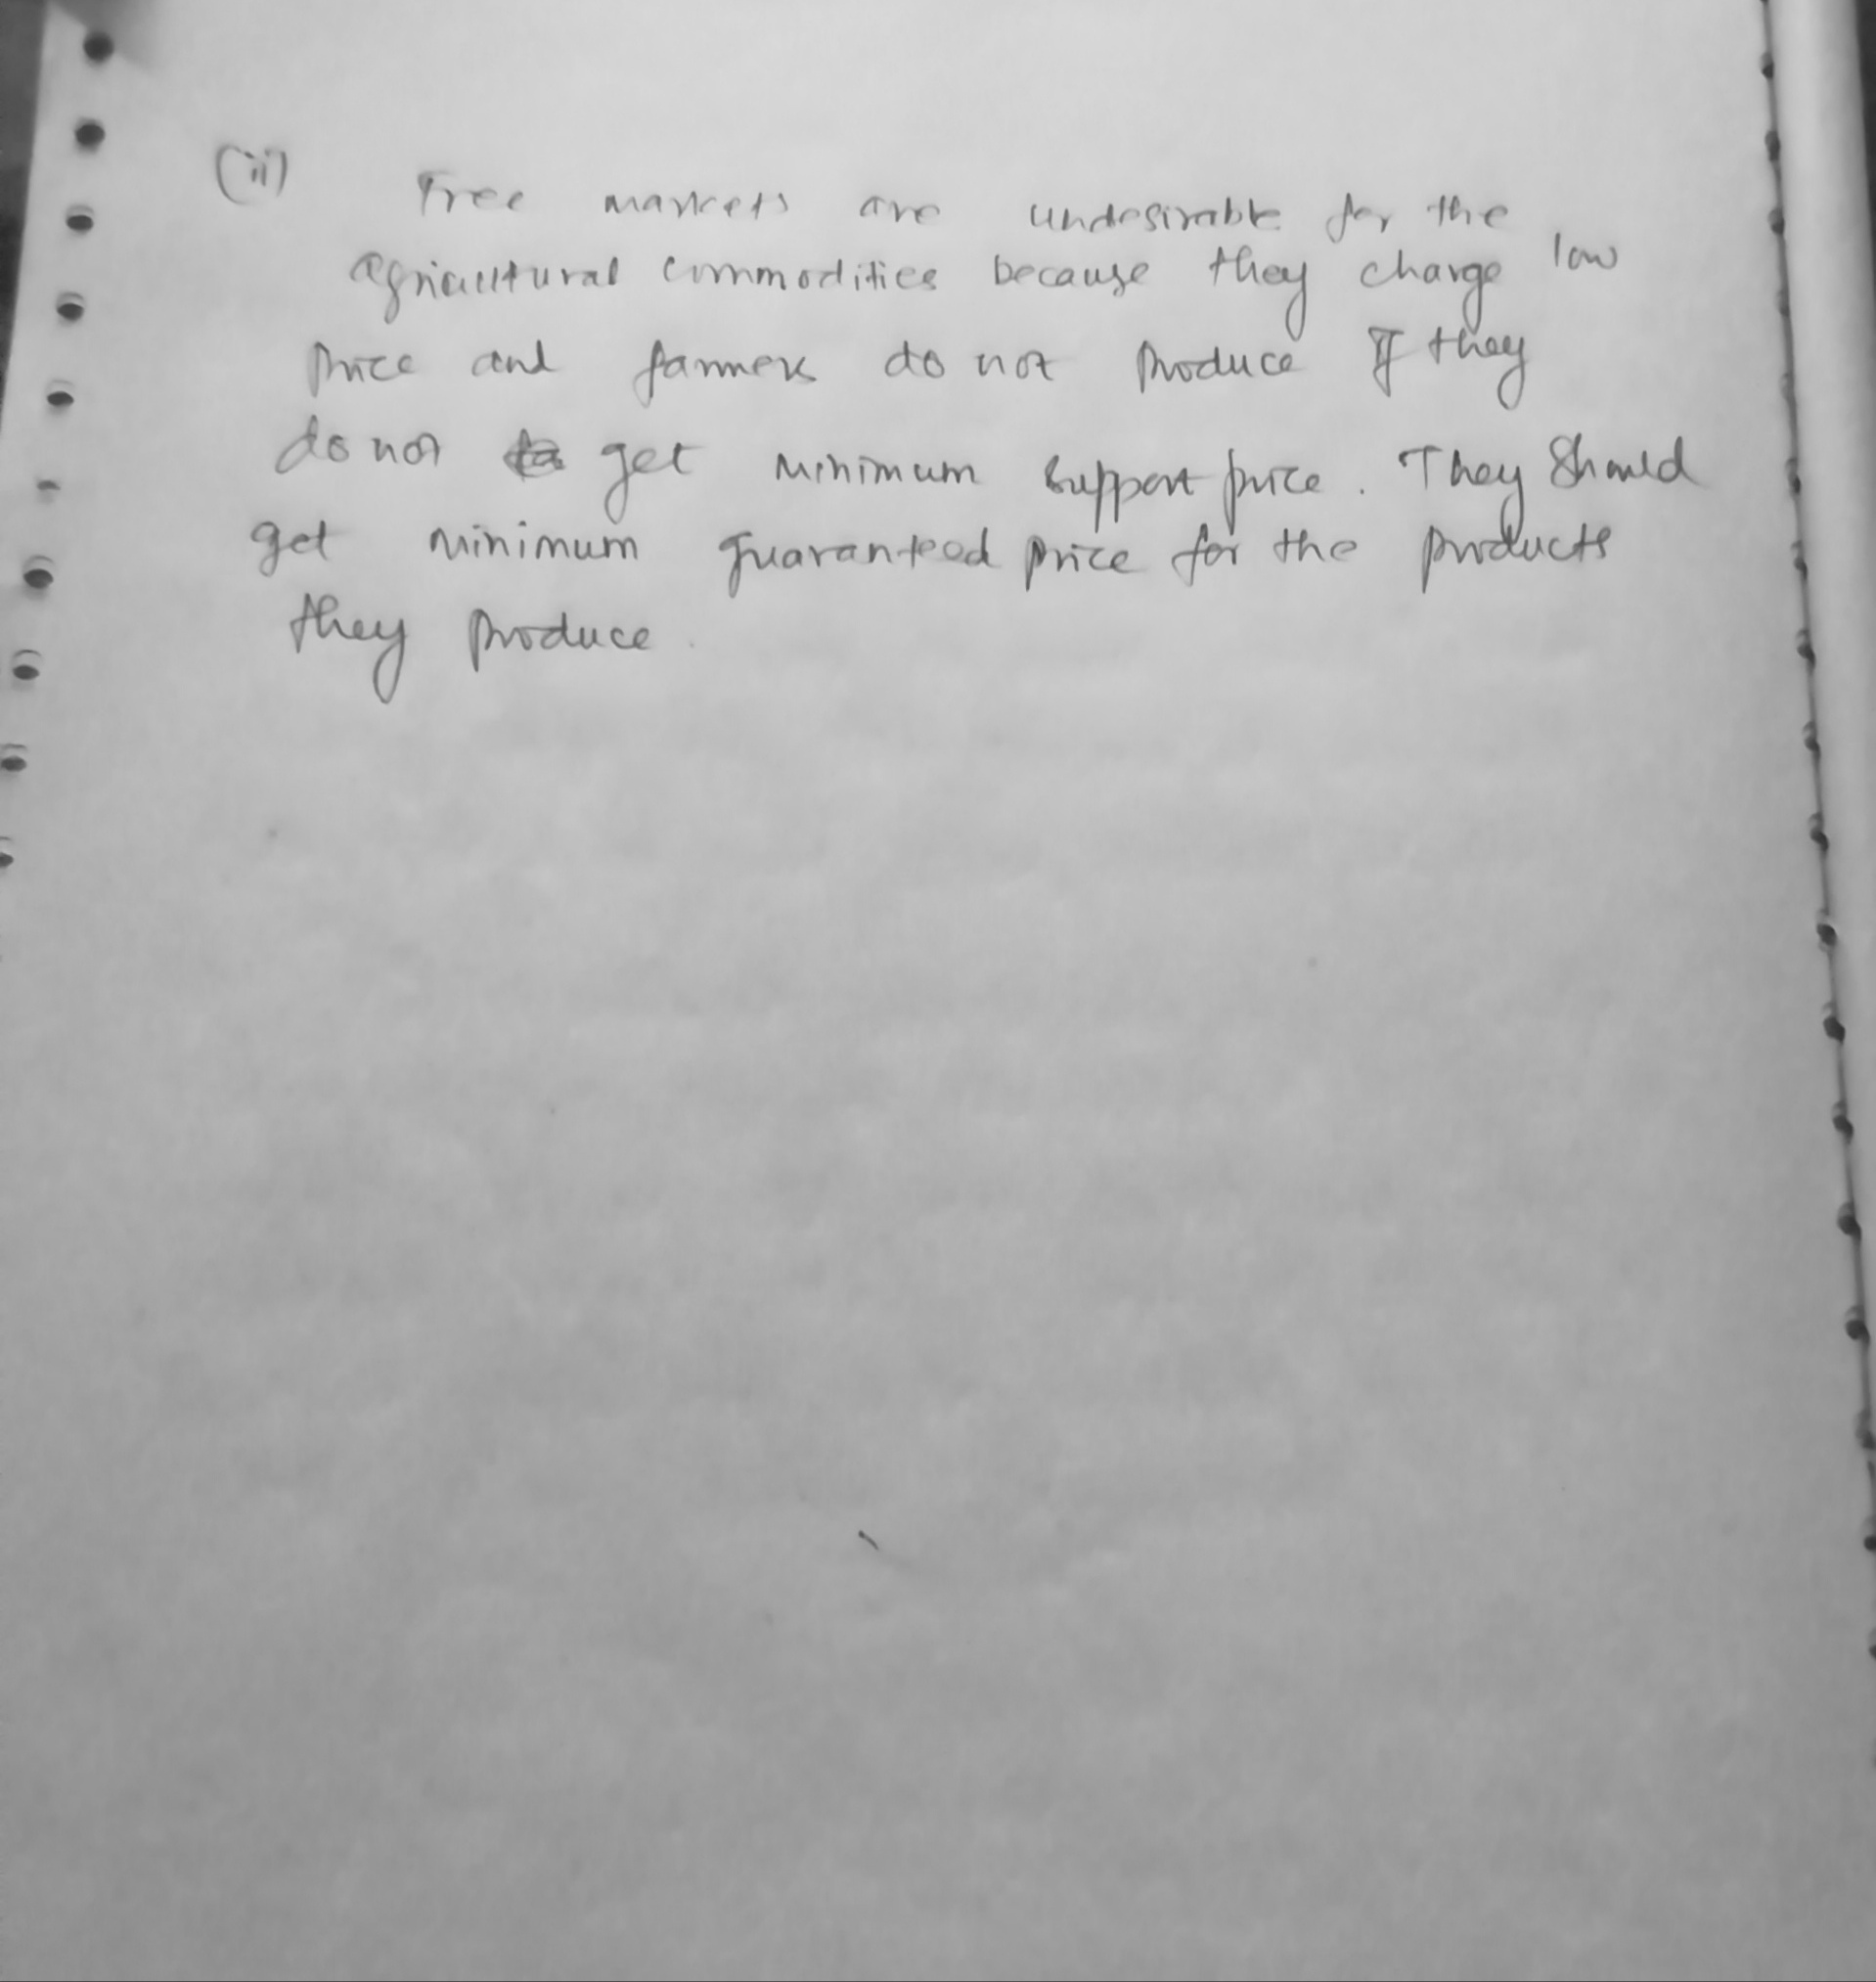 (ii) Free markets are undesirable for the
agricultural commodities because they charge low
price and farmers do not produce If they
do not get minimum support price. They should
get minimum guaranteed price for the products
they produce.